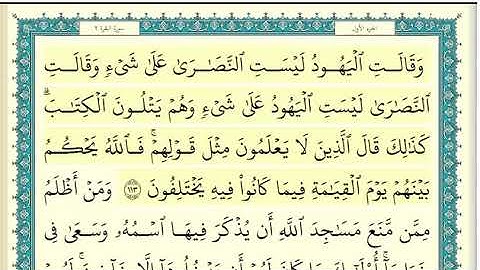 سورة البقرة ٢
الجزء الأول
وَقَالَتِ الْيَهُودُ لَيْسَتِ النَّصَـٰرَىٰ عَلَىٰ شَىْءٍ وَقَالَتِ
النَّصَـٰرَىٰ لَيْسَتِ الْيَهُودُ عَلَىٰ شَىْءٍ وَهُمْ يَتْلُونَ الْكِتَـٰبَ ۗ
كَذَٰلِكَ قَالَ الَّذِينَ لَا يَعْلَمُونَ مِثْلَ قَوْلِهِمْ ۚ فَاللَّهُ يَحْكُمُ
بَيْنَهُمْ يَوْمَ الْقِيَـٰمَةِ فِيمَا كَانُوا۟ فِيهِ يَخْتَلِفُونَ ١١٣ وَمَنْ أَظْلَمُ
مِمَّن مَّنَعَ مَسَـٰجِدَ اللَّهِ أَن يُذْكَرَ فِيهَا اسْمُهُۥ وَسَعَىٰ فِى